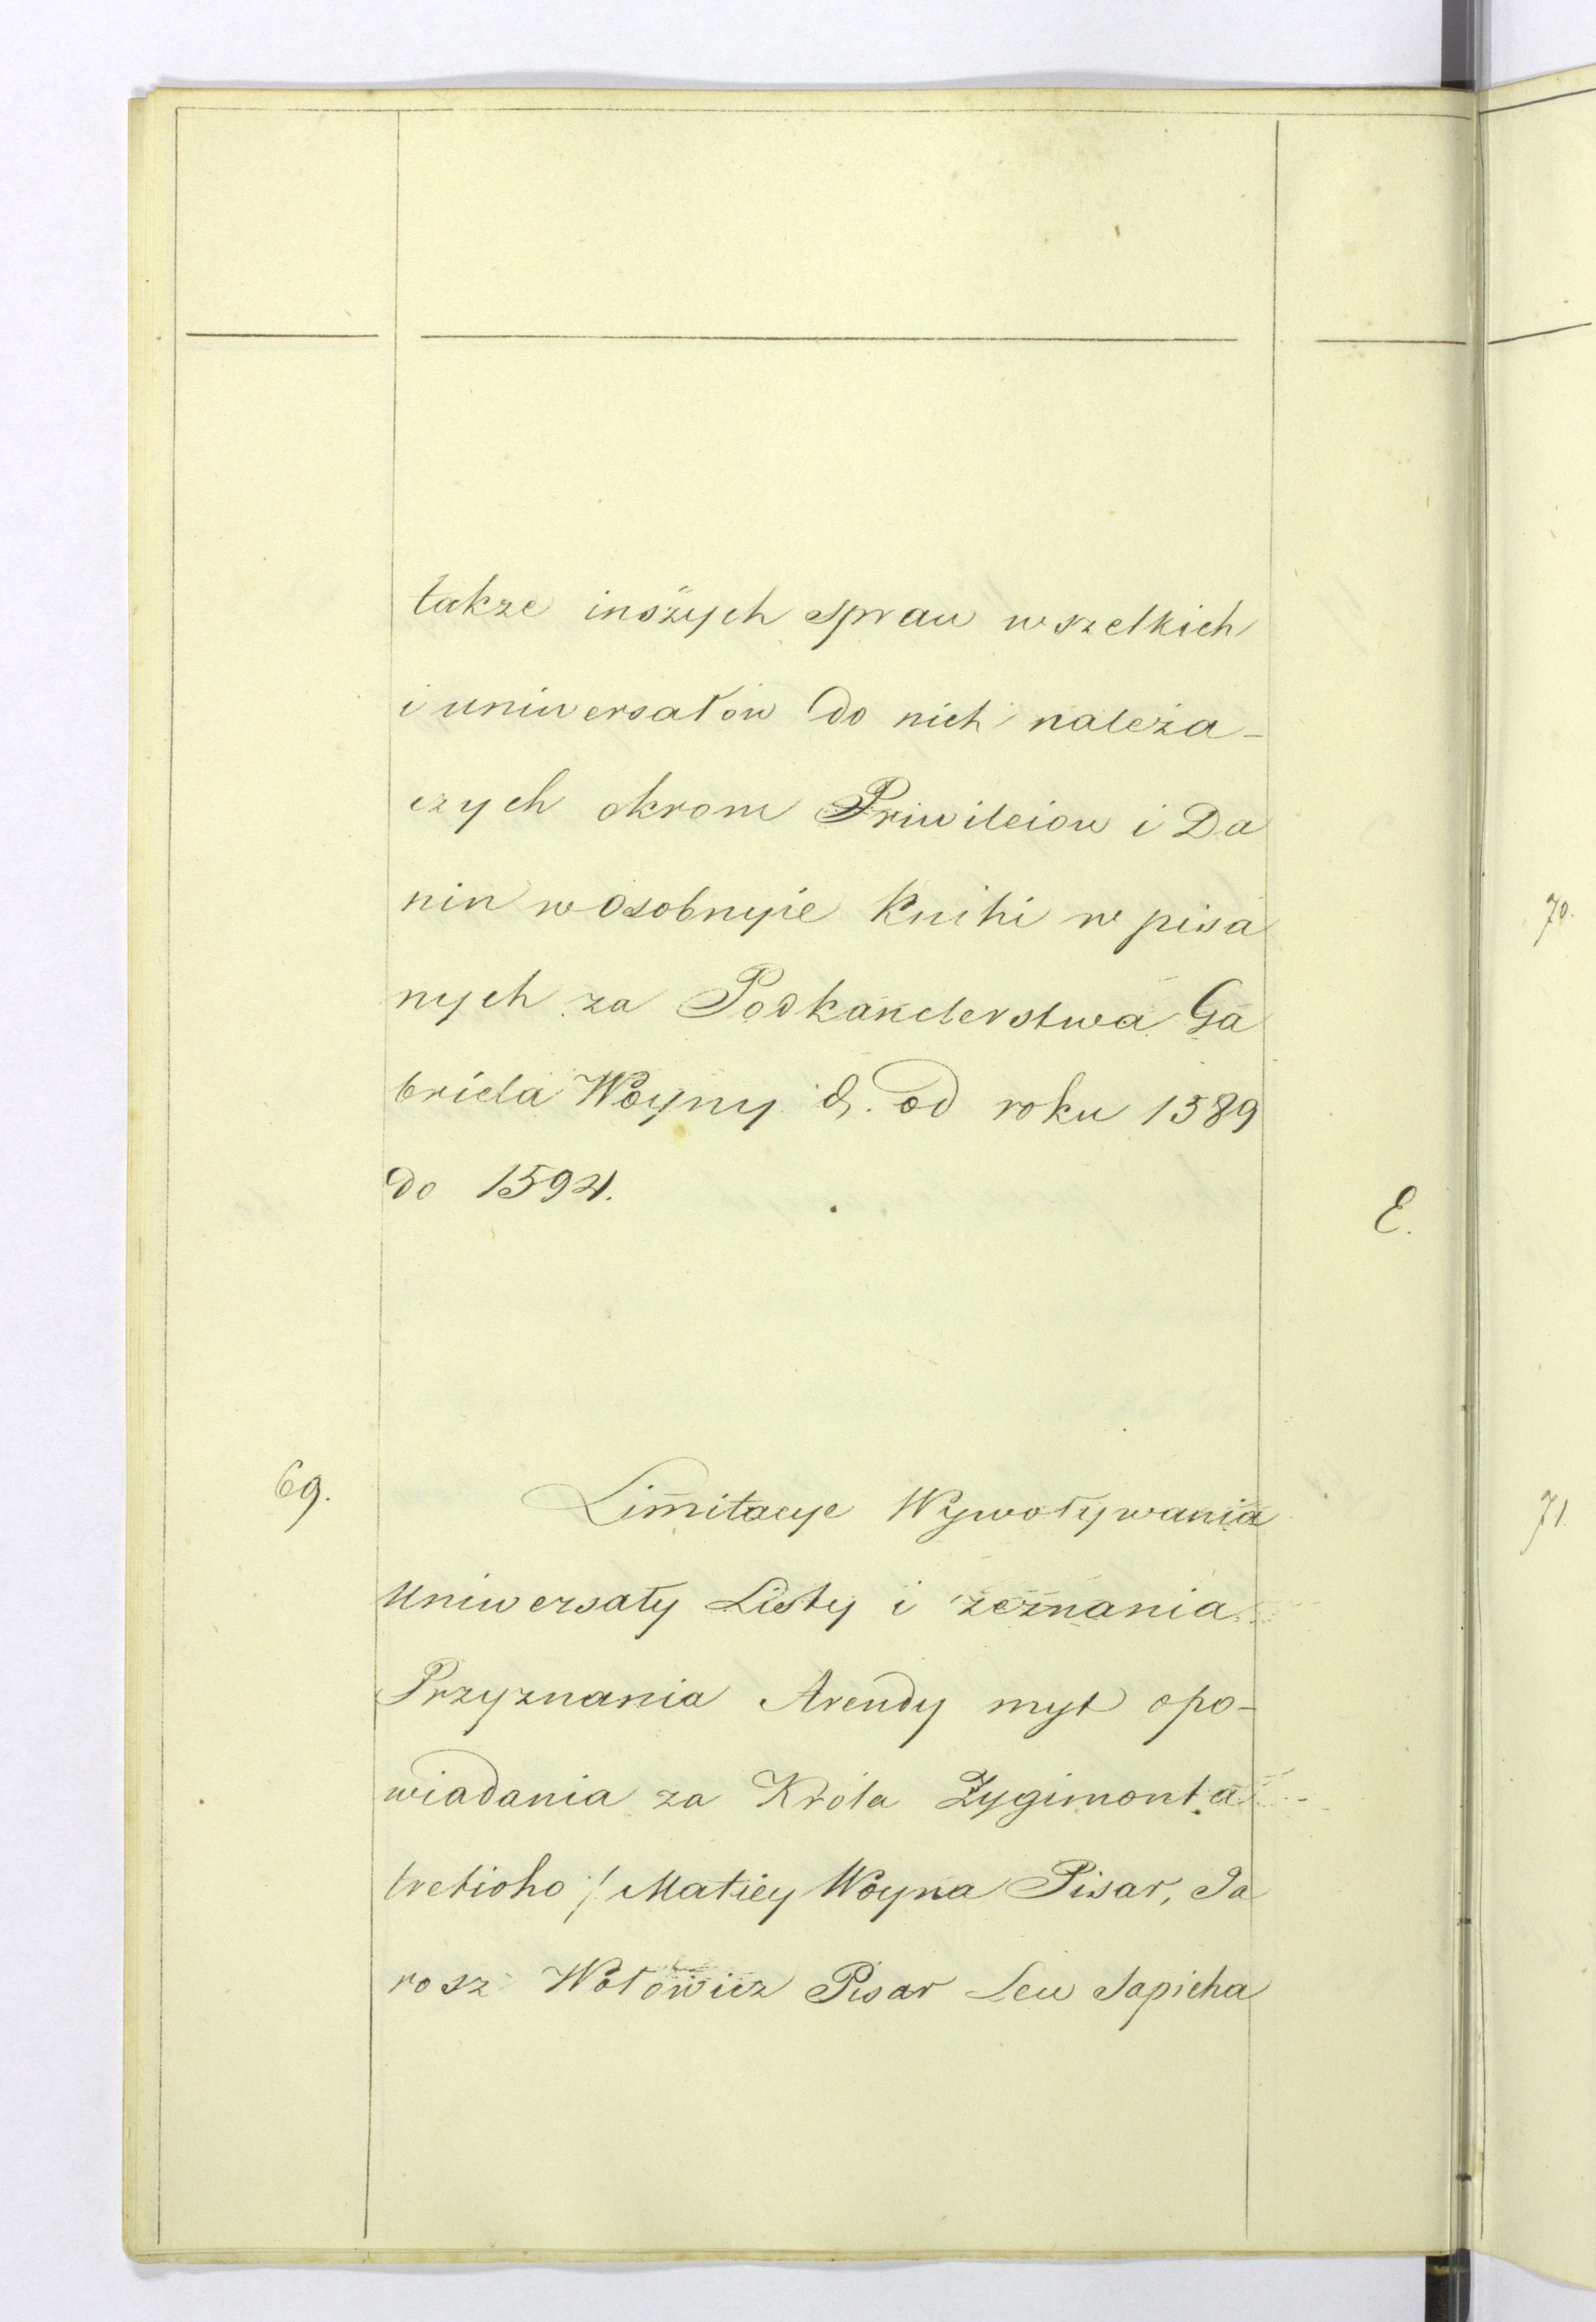 takze inszych spraw wszelkich
i uniwersałow do nich należa-
czych okrom Priwileiow i Da
nin w osobnyie Knihi w pisa
nych za Podkanclerstwa Ga
briela Woyny &. od roku 1589
do 1594.
E.
69.
Limitacye Wywoływania
Uniwersały Listy i zeznania
Przyznania Arendy myt opo-
wiadania za Króla Zygimonta
tretioho / Matiey Woyna Pisar, Ja
rosz Wołowicz Pisar Lew Sapieha
70.
71.